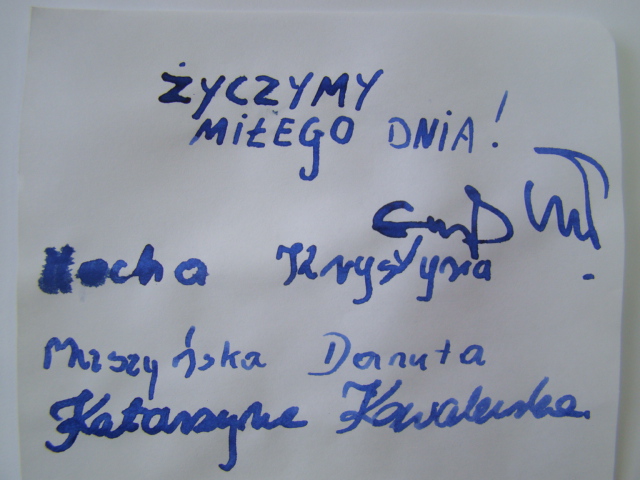 ŻYCZYMY
MIŁEGO DNIA!
Krystyna
Muszyńska Danuta
Katarzyna Kowalewska